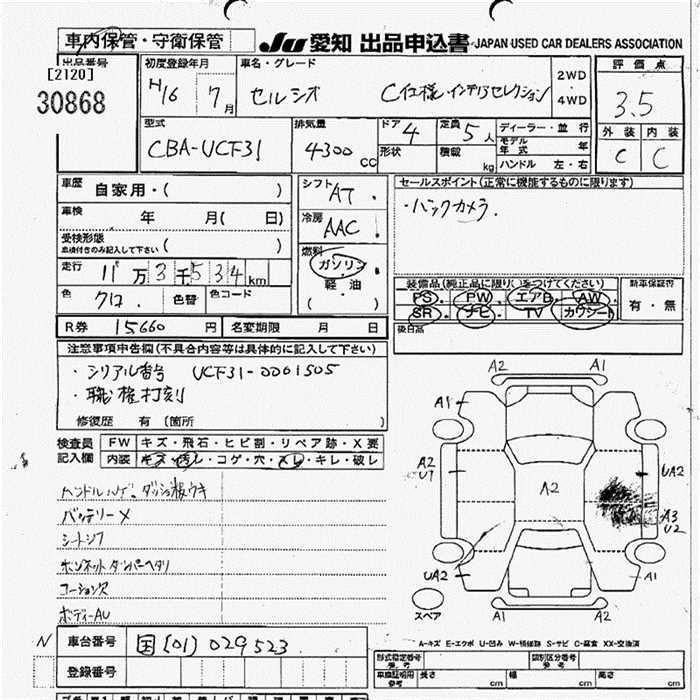 車内保管・守衛保管 JU 愛知 出品申込書 JAPAN USED CAR DEALERS ASSOCIATION
出品番号 初度登録年月 車名・グレード 評価点
[2120] 30868 H16 7月 セルシオ C仕様・インテリアセレクション 2WD・4WD 3.5
型式 排気量 ドア 4 定員 5人 ディーラー・並行 外装 内装
CBA-UCF31 4300 CC 形状 積載 kg モデル年式 年 C C
ハンドル 左・右
車歴 自家用・( ) シフト AT セールスポイント(正常に機能するものに限ります)
車検 年 月( 日) 冷房 AAC ・バックカメラ.
受検形態 ( )
車検付きのみ記入して下さい
走行 11万3千534km 燃料 ガソリン・軽油・( )
色 クロ 色替 色コード 装備品(純正品に限り○をつけてください) 新車保証書
PS. PW. エアB. AW. 有・無
SR ナビ・ TV カワシート
R券 15,660円 名変期限 月 日 後日品
注意事項申告欄(不具合内容等は具体的に記入して下さい)
・シリアル番号 UCF31-0001505
・職権打刻
修復歴 有 〔箇所 〕
検査員 FW キズ・飛石・ヒビ割・リペア跡・X要
記入欄 内装 キズ・汚レ・コゲ・穴・スレ・キレ・破レ
ダッシュ板ウキ
バッテリーX
ボディーAU
A2 A1
A1
A2 U1 A2 UA2
A3 U2
UA2 A1
スペア A1 A2
A-キズ E-エクボ U-凹み W-補修跡 S-サビ C-腐食 XX-交換済
N 車台番号 国[01]029523
登録番号
型式指定番号 類別区分番号
長さ cm 幅 cm 高さ cm